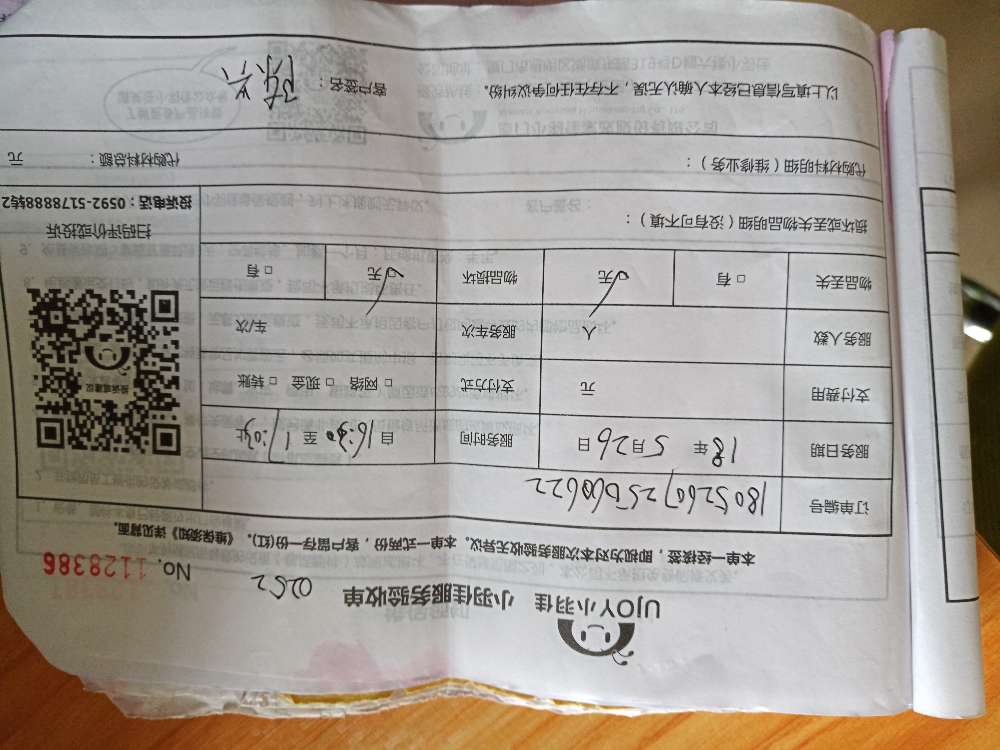 UJOY小羽佳 小羽佳服务验收单 0252
No. 1128386
本单一经签接,即视为对本次服务验收无异议。本单一式两份,客户留存一份(红)。《维保须知》详见背面。
订单编号
服务日期 18年 5月26日 服务时间 自16:30至17:03止
支付费用 元 支付方式 □网络 □现金 □转账
服务人数 人 服务车次 车/次
物品丢失 □有 □无 物品损坏 □无 □有
投诉或建议
扫码评价或投诉
投诉电话:0592-5178888转2
损坏或丢失物品明细(没有可不填):
代购材料明细(维修业务): 代购材料总额: 元
以上填写信息已经本人确认无误,不存在任何争议纠纷。 客户签名: